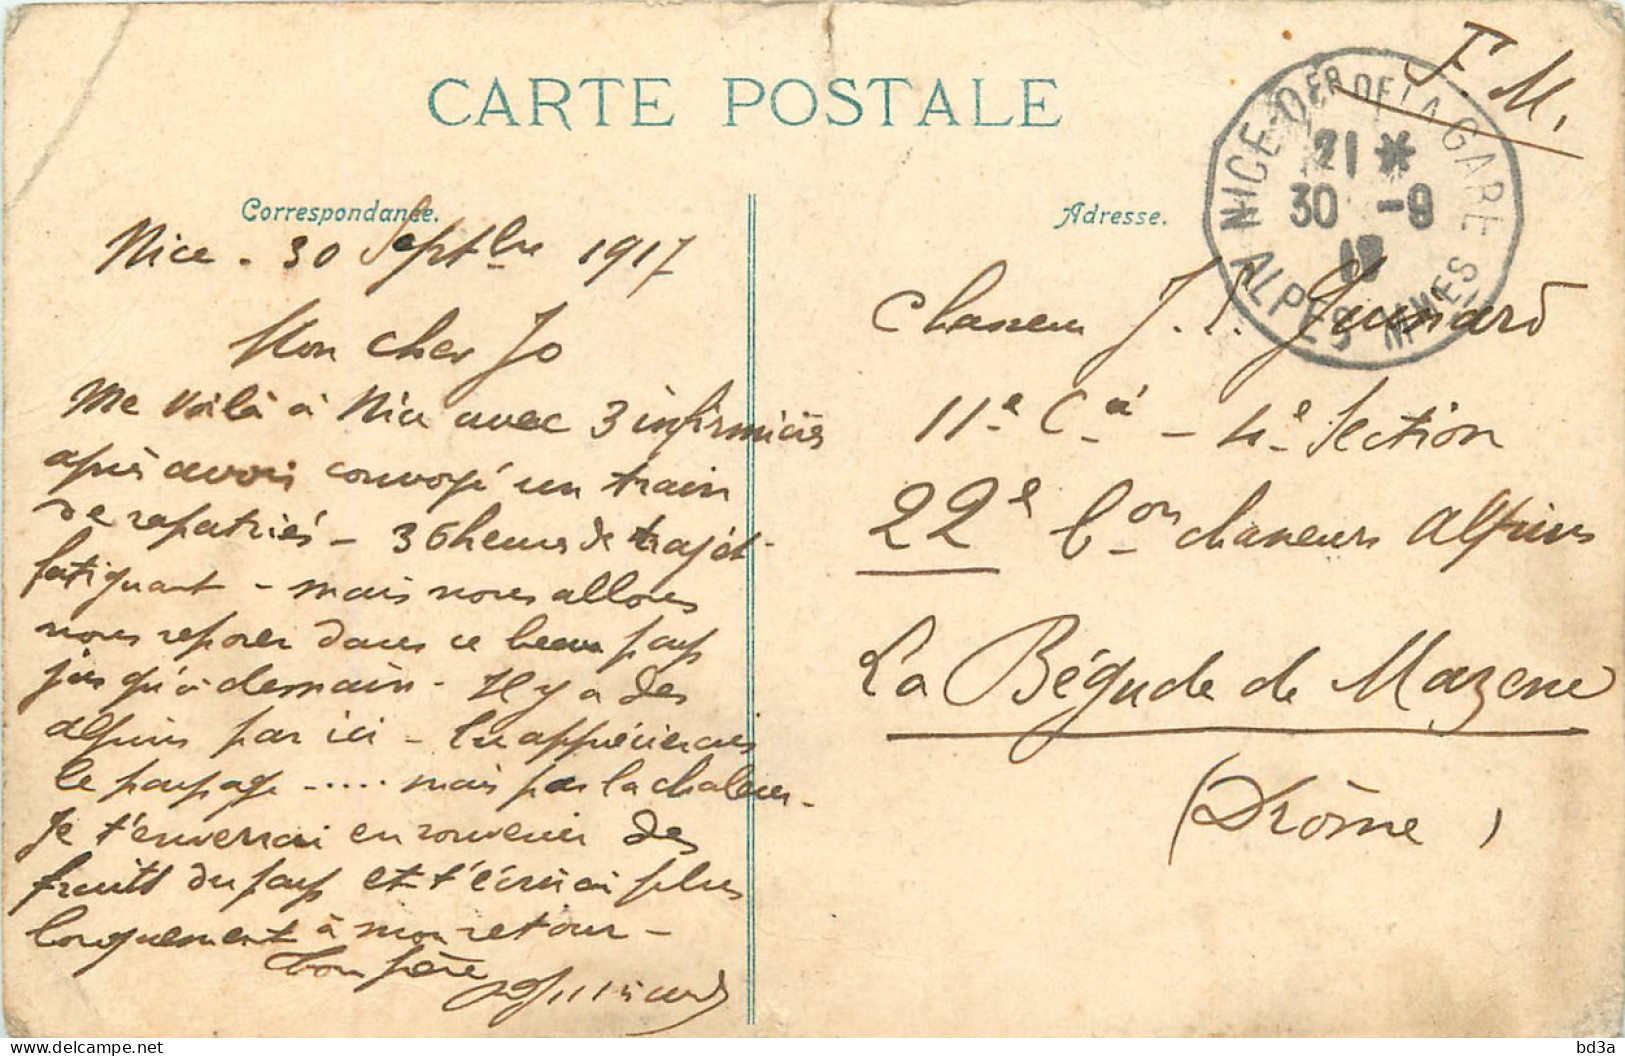 CARTE POSTALE
F.M.
NICE-DER DE LA GARE
21 *
30 -9
ALPES MMES
Correspondance.
Adresse.
Nice - 30 Septbre 1917
Mon cher Jo
Me voilà à Nice avec 3 infirmières
après avoir convoyé un train
de rapatriés - 36 heures de trajet
fatiguant - mais nous allons
nous reposer dans ce beau pays
jusqu'à demain - Il y a des
alpins par ici - Tu apprécierais
le paysage ..... mais pas la chaleur -
Je t'enverrai en souvenir des
fruits du pays et t'écrirai plus
longuement à mon retour -
Ton père
Chasseur J.
11e Cie - 4e Section
22e Bon chasseurs alpins
La Bégude de Mazenc
(Drôme)
bd3a